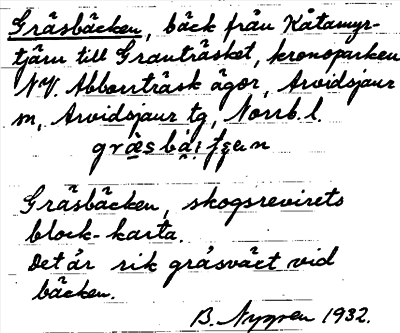 Gräsbäcken, bäck från Kåtamyr-
tjärn till Granträsket, kronoparken
N.V. Abborrträsk ägor, Arvidsjaur
sn, Arvidsjaur tg, Norrb. l.
Gräsbäcken, skogsrevirets
block-karta.
Det är rik gräsväxt vid
bäcken.
B. Nygren 1932.